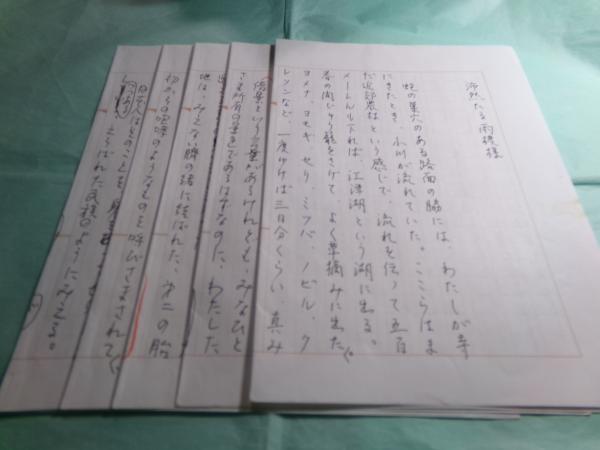 沛然たる雨模様
蛇の巣穴のある路面の脇には、わたしが幸
にきたとき、小川が流れていた。ここらはま
だ近郊農村という感じで、流れを伝って五百
メートルも下れば、江津湖という湖に出る。
春の間じゅう籠をさげて、よく草摘みに出た。
ヨメナ、ヨモギ、せり、ミツバ、ノビル、ク
レソンなど、一度ゆけば三日分くらい、真み
借景という言葉があるけれども、みなひと
さま所有の景色であるはずなのに、わたした
地は、みえない臍の緒に結ばれた、第二の胎
初からの咆哮のようなものを呼びさまされて
えらばれた民族のようにみえる。